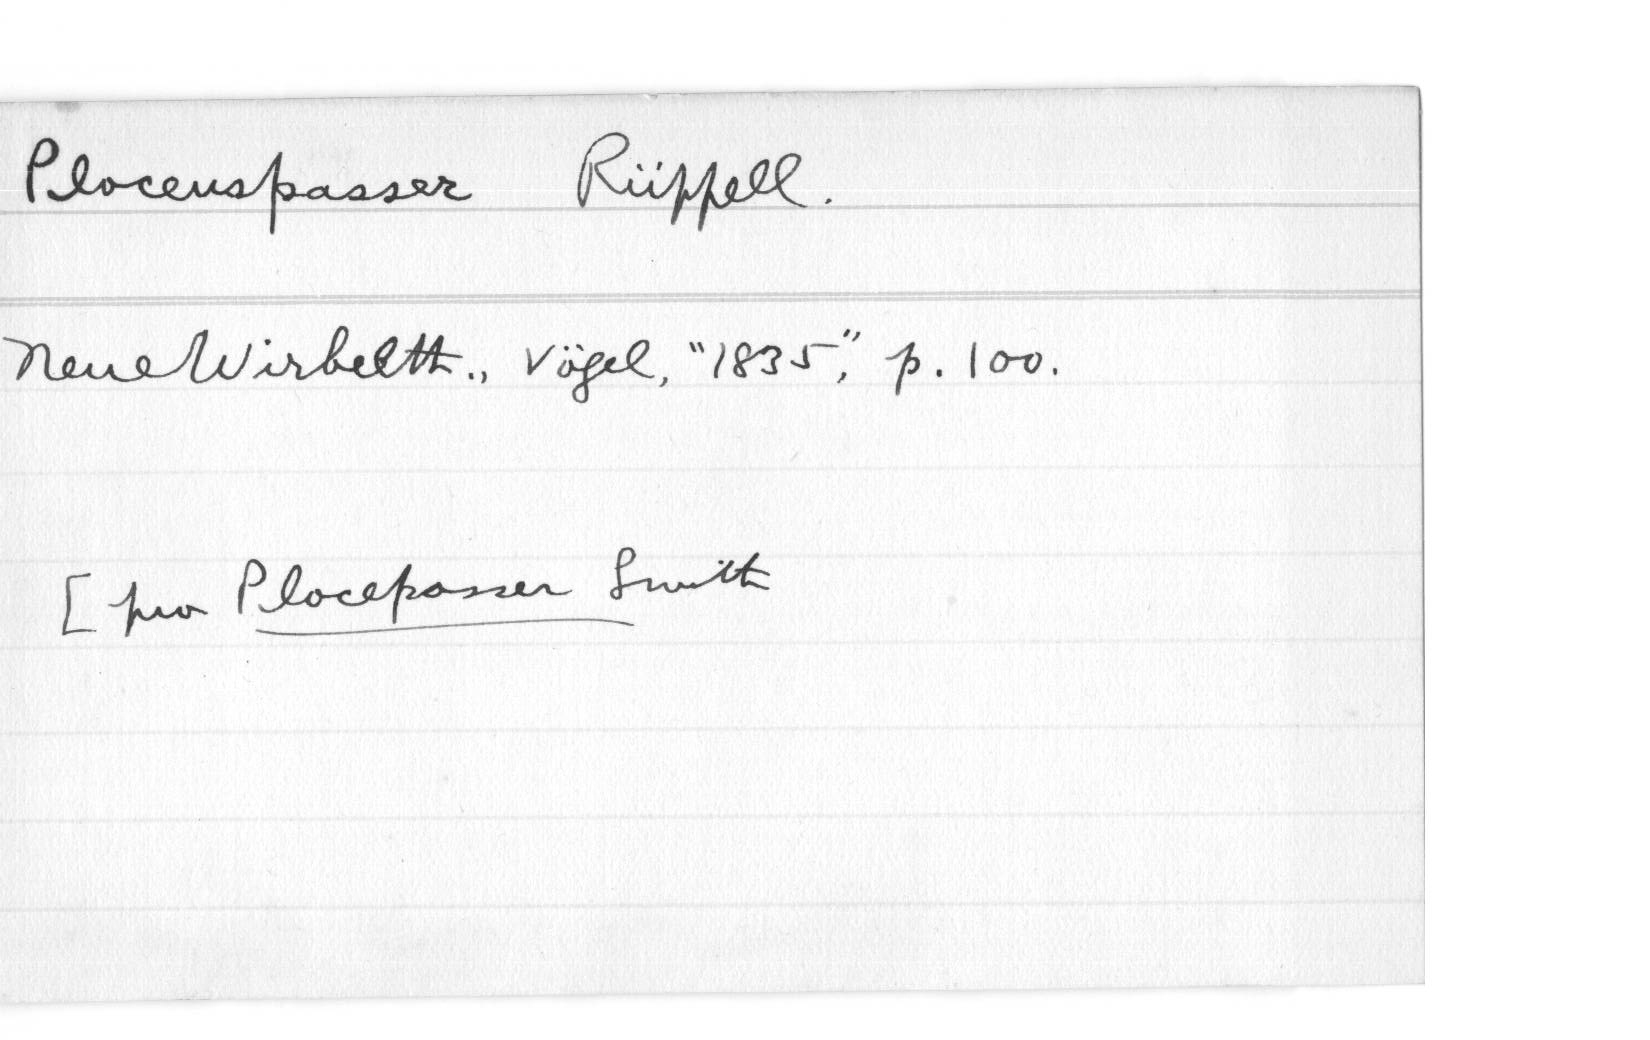 Ploceuspasser Rüppell.
Neue Wirbelth., Vögel, "1835", p. 100.
[ pro Plocepasser Smith